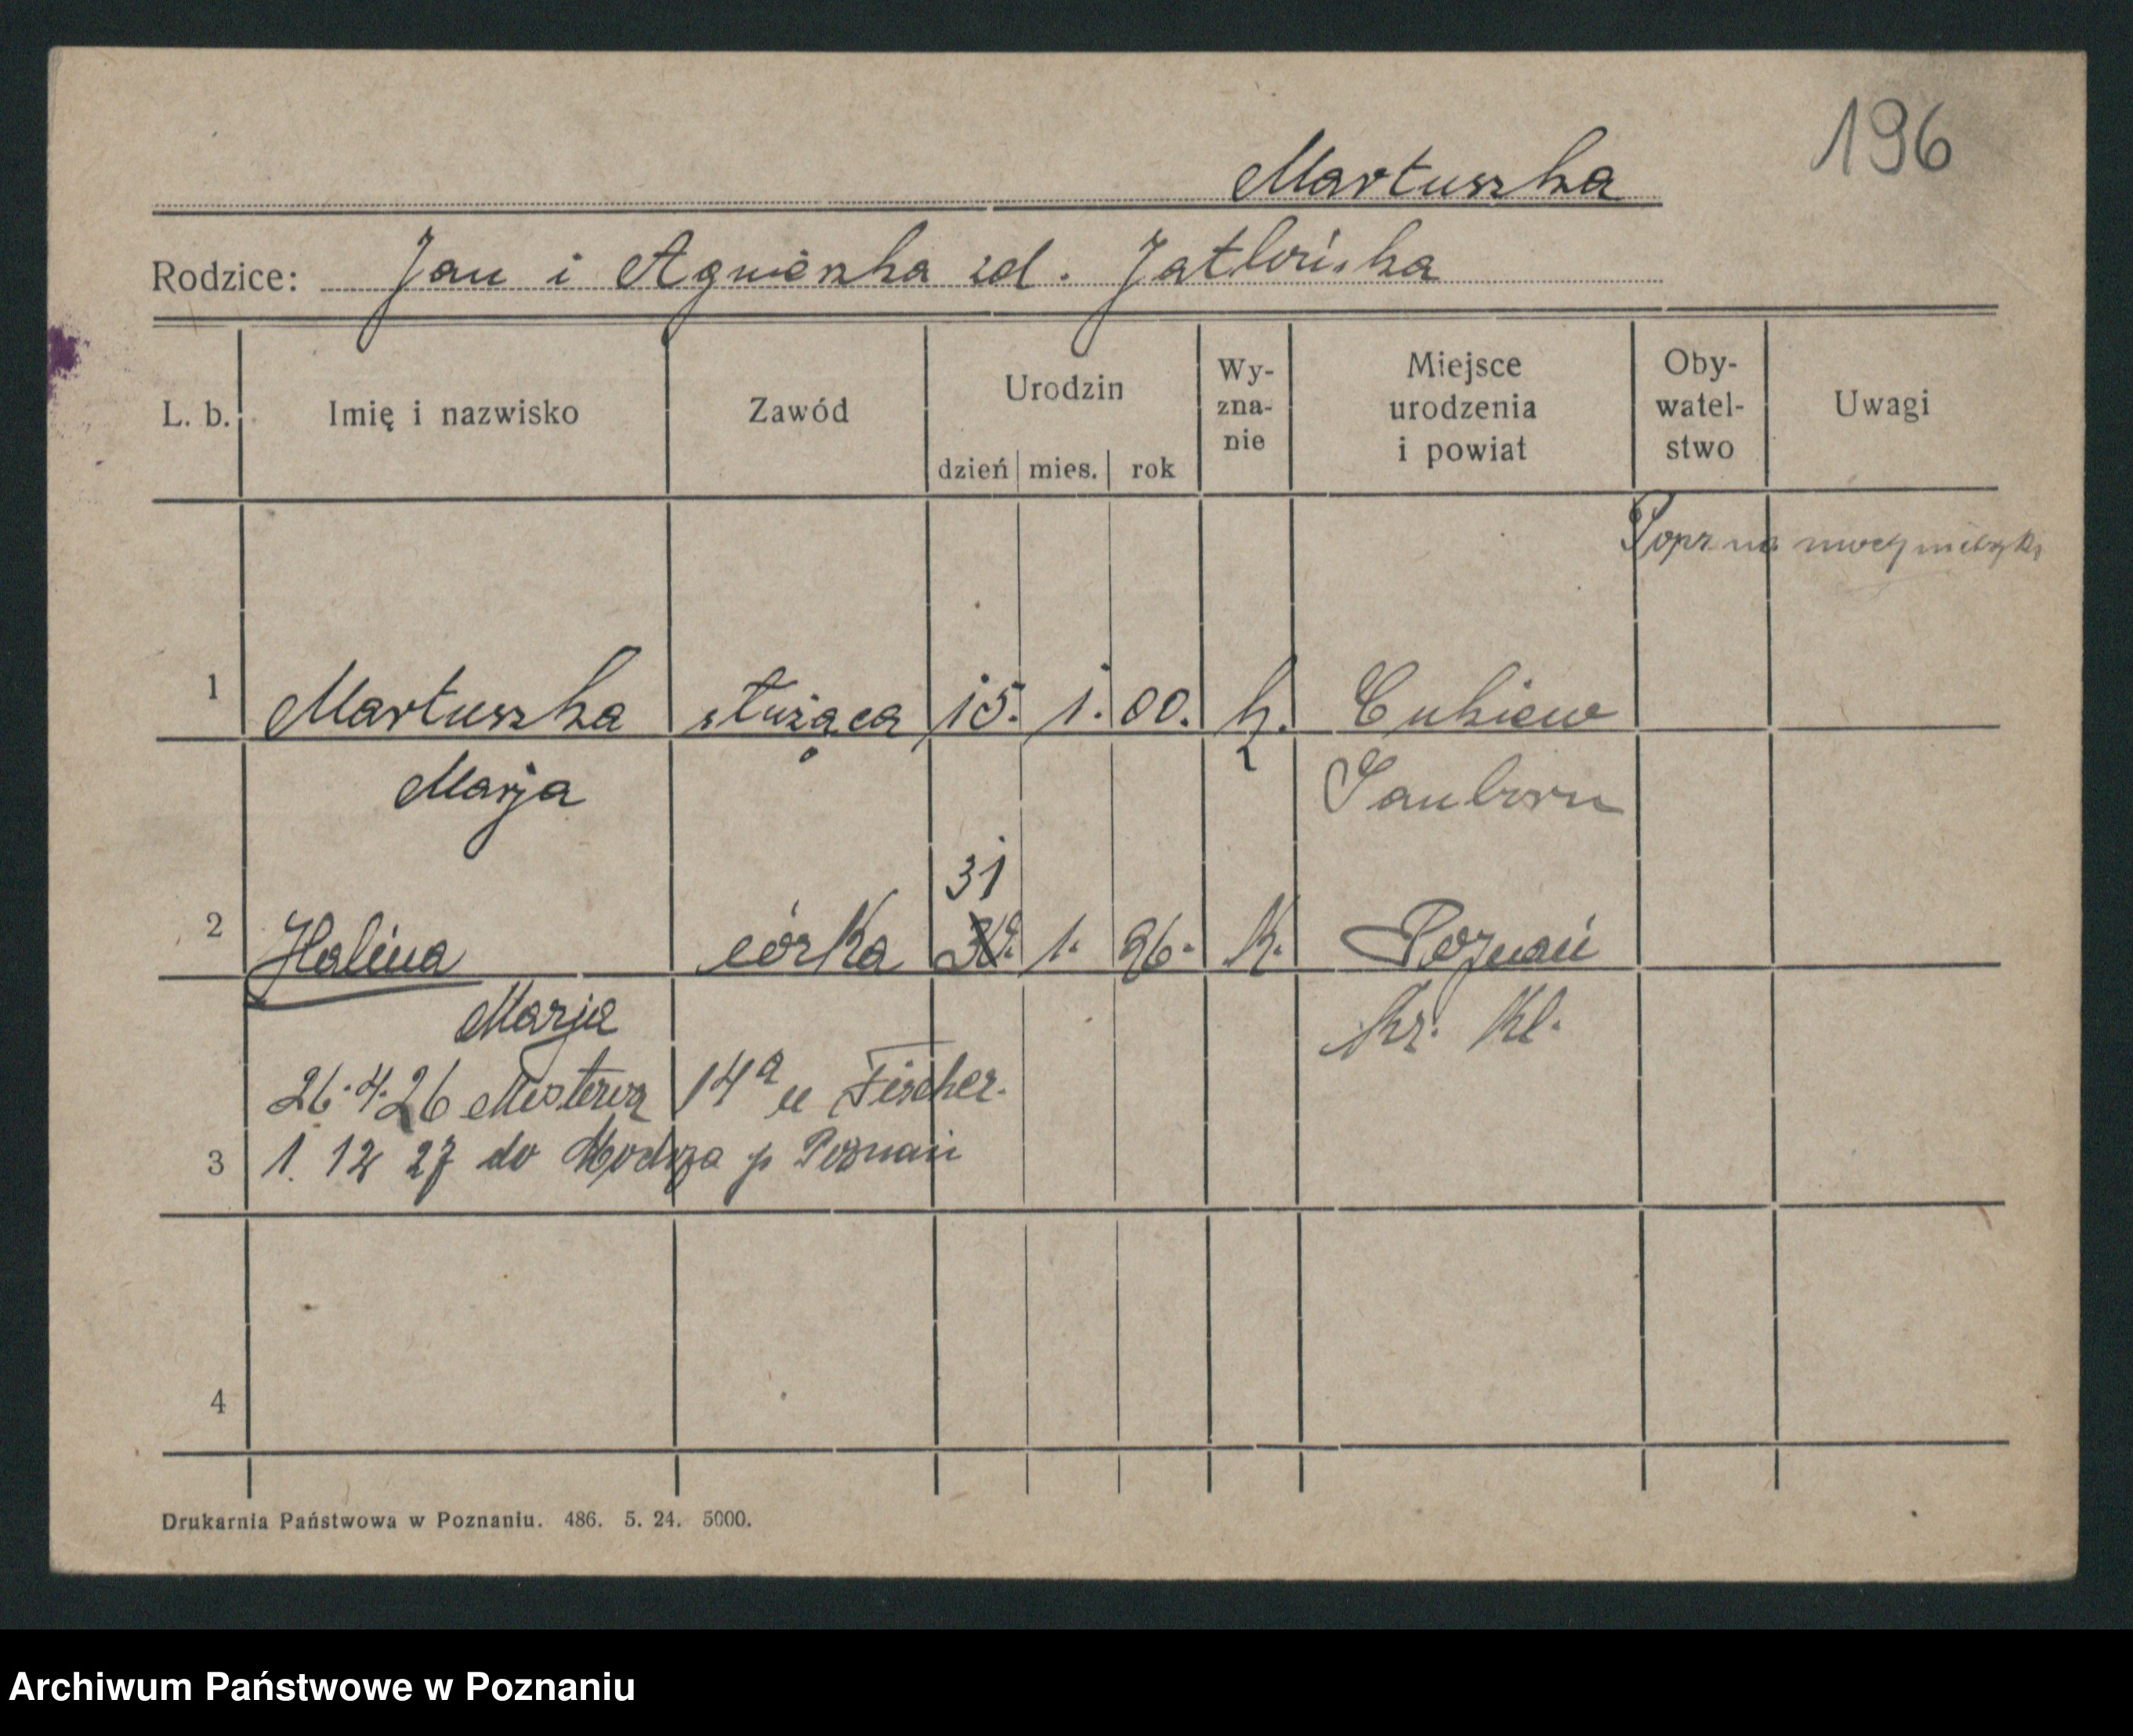 196
Martuszka
Rodzice: Jan i Agnieszka zd.
L. b. Imię i nazwisko Zawód Urodzin dzień mies. rok Wy-zna-nie Miejsce urodzenia i powiat Oby-watel-stwo Uwagi
Popr. na
1 Martuszka służąca 15. 1. 00. k.
Marja
31
2 Halina córka 30. 1. 26. K. Poznań
Marja kr. Kl.
26.4.26 14a u Fischer.
3 1. 12 27 do p Poznań
4
Drukarnia Państwowa w Poznaniu. 486. 5. 24. 5000.
Archiwum Państwowe w Poznaniu